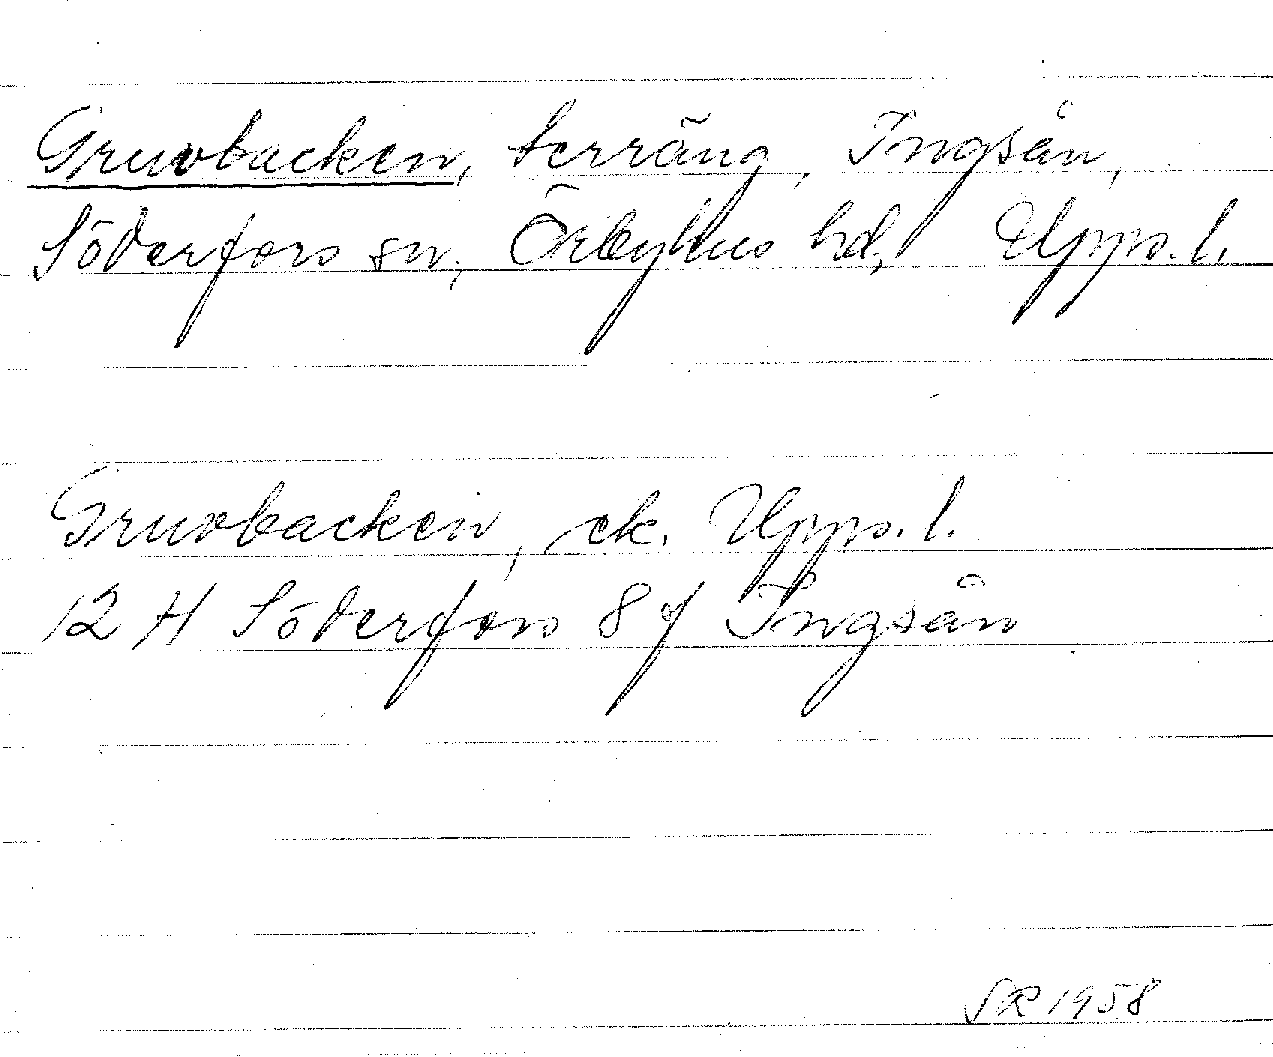 Gruvbacken, terräng, Ingsån,
Söderfors sn, Örbyhus hd, Upps.l.
Gruvbacken, ek. Upps.l.
12 H Söderfors 8f Ingsån
SR 1958